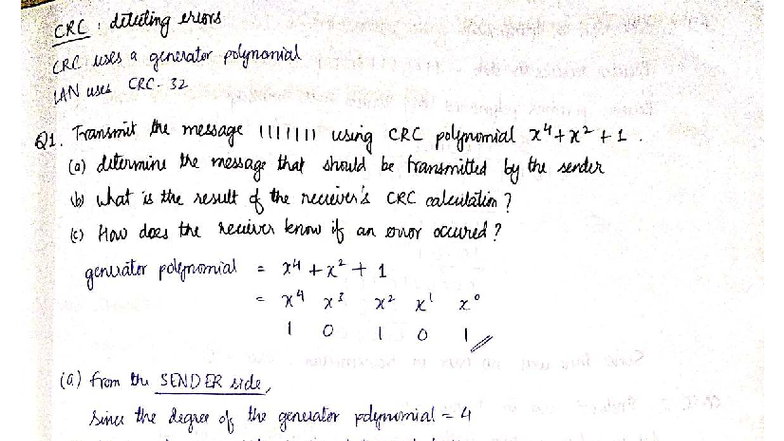 CRC : detecting errors
CRC uses a generator polynomial
LAN uses CRC-32
Q1. Transmit the message 1111111 using CRC polynomial x⁴+x²+1.
(a) determine the message that should be transmitted by the sender
(b) what is the result of the reciever's CRC calculation?
(c) How does the reciever know if an error occured?
generator polynomial = x⁴+x²+1
= x⁴ x³ x² x¹ x⁰
1 0 1 0 1
(a) from the SENDER side,
since the degree of the generator polynomial = 4